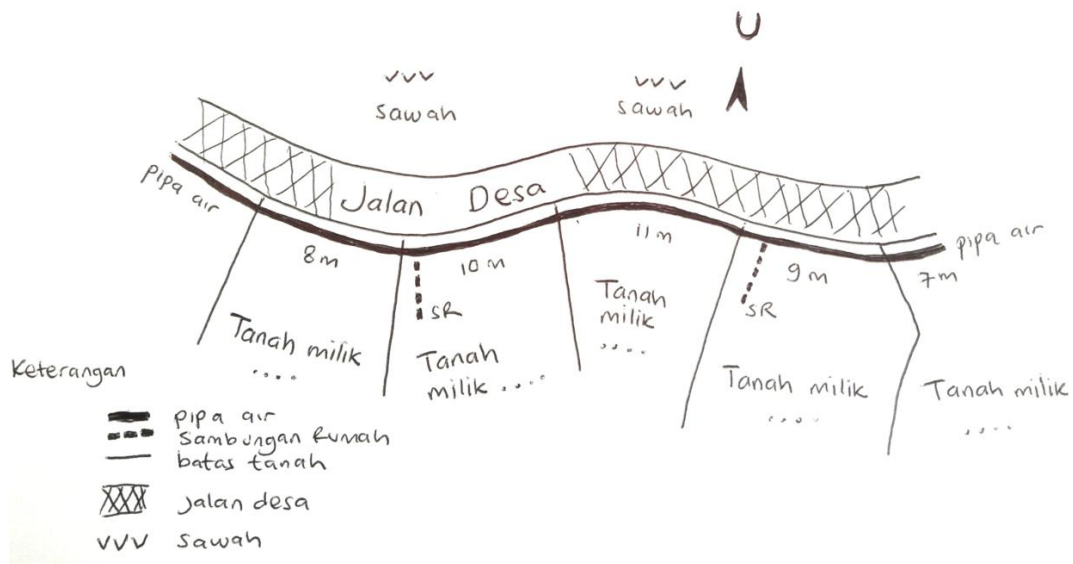 U
sawah
sawah
pipa air
Jalan Desa
pipa air
8 m
10 m
11 m
9 m
7 m
SR
SR
Tanah milik
....
Tanah
milik ....
Tanah
milik
....
Tanah milik
....
Tanah milik
....
Keterangan
pipa air
Sambungan Rumah
batas tanah
Jalan desa
sawah